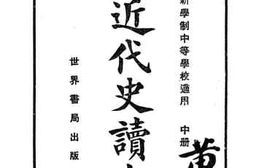 新學制中等學校適用
中册
近代史讀
世界書局出版